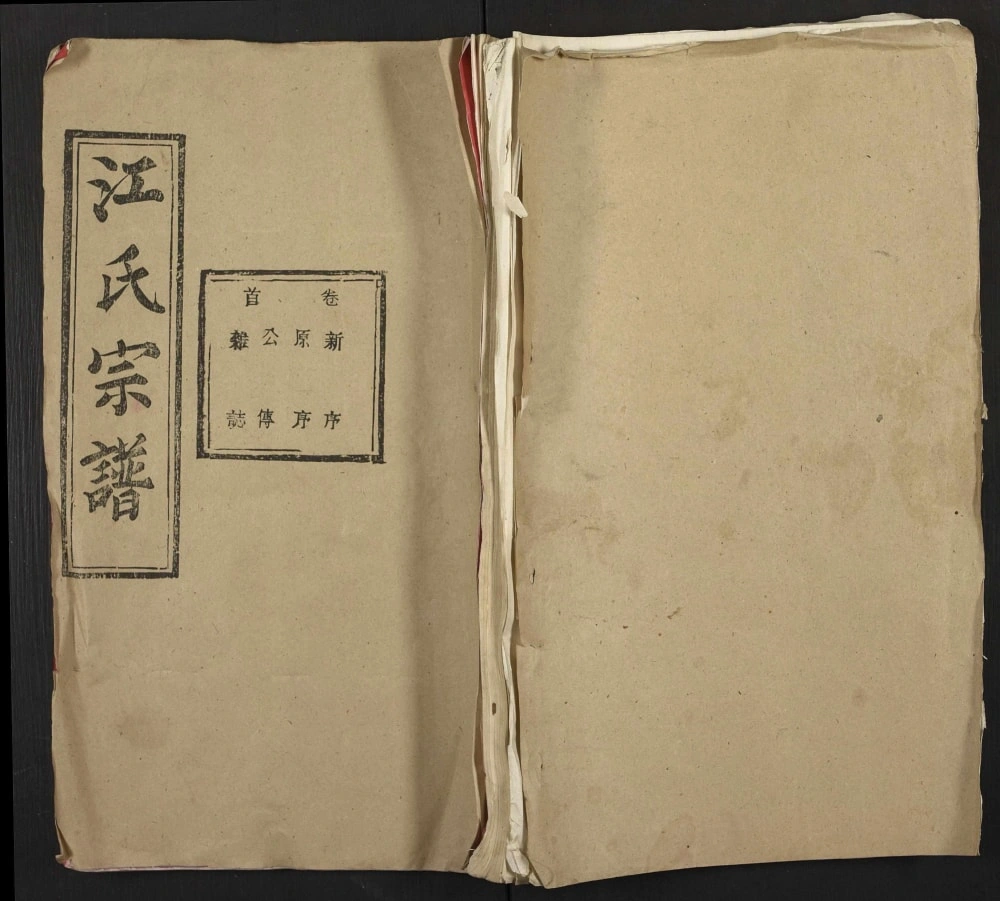 江氏宗譜
卷首
新序
原序
公傳
雜誌